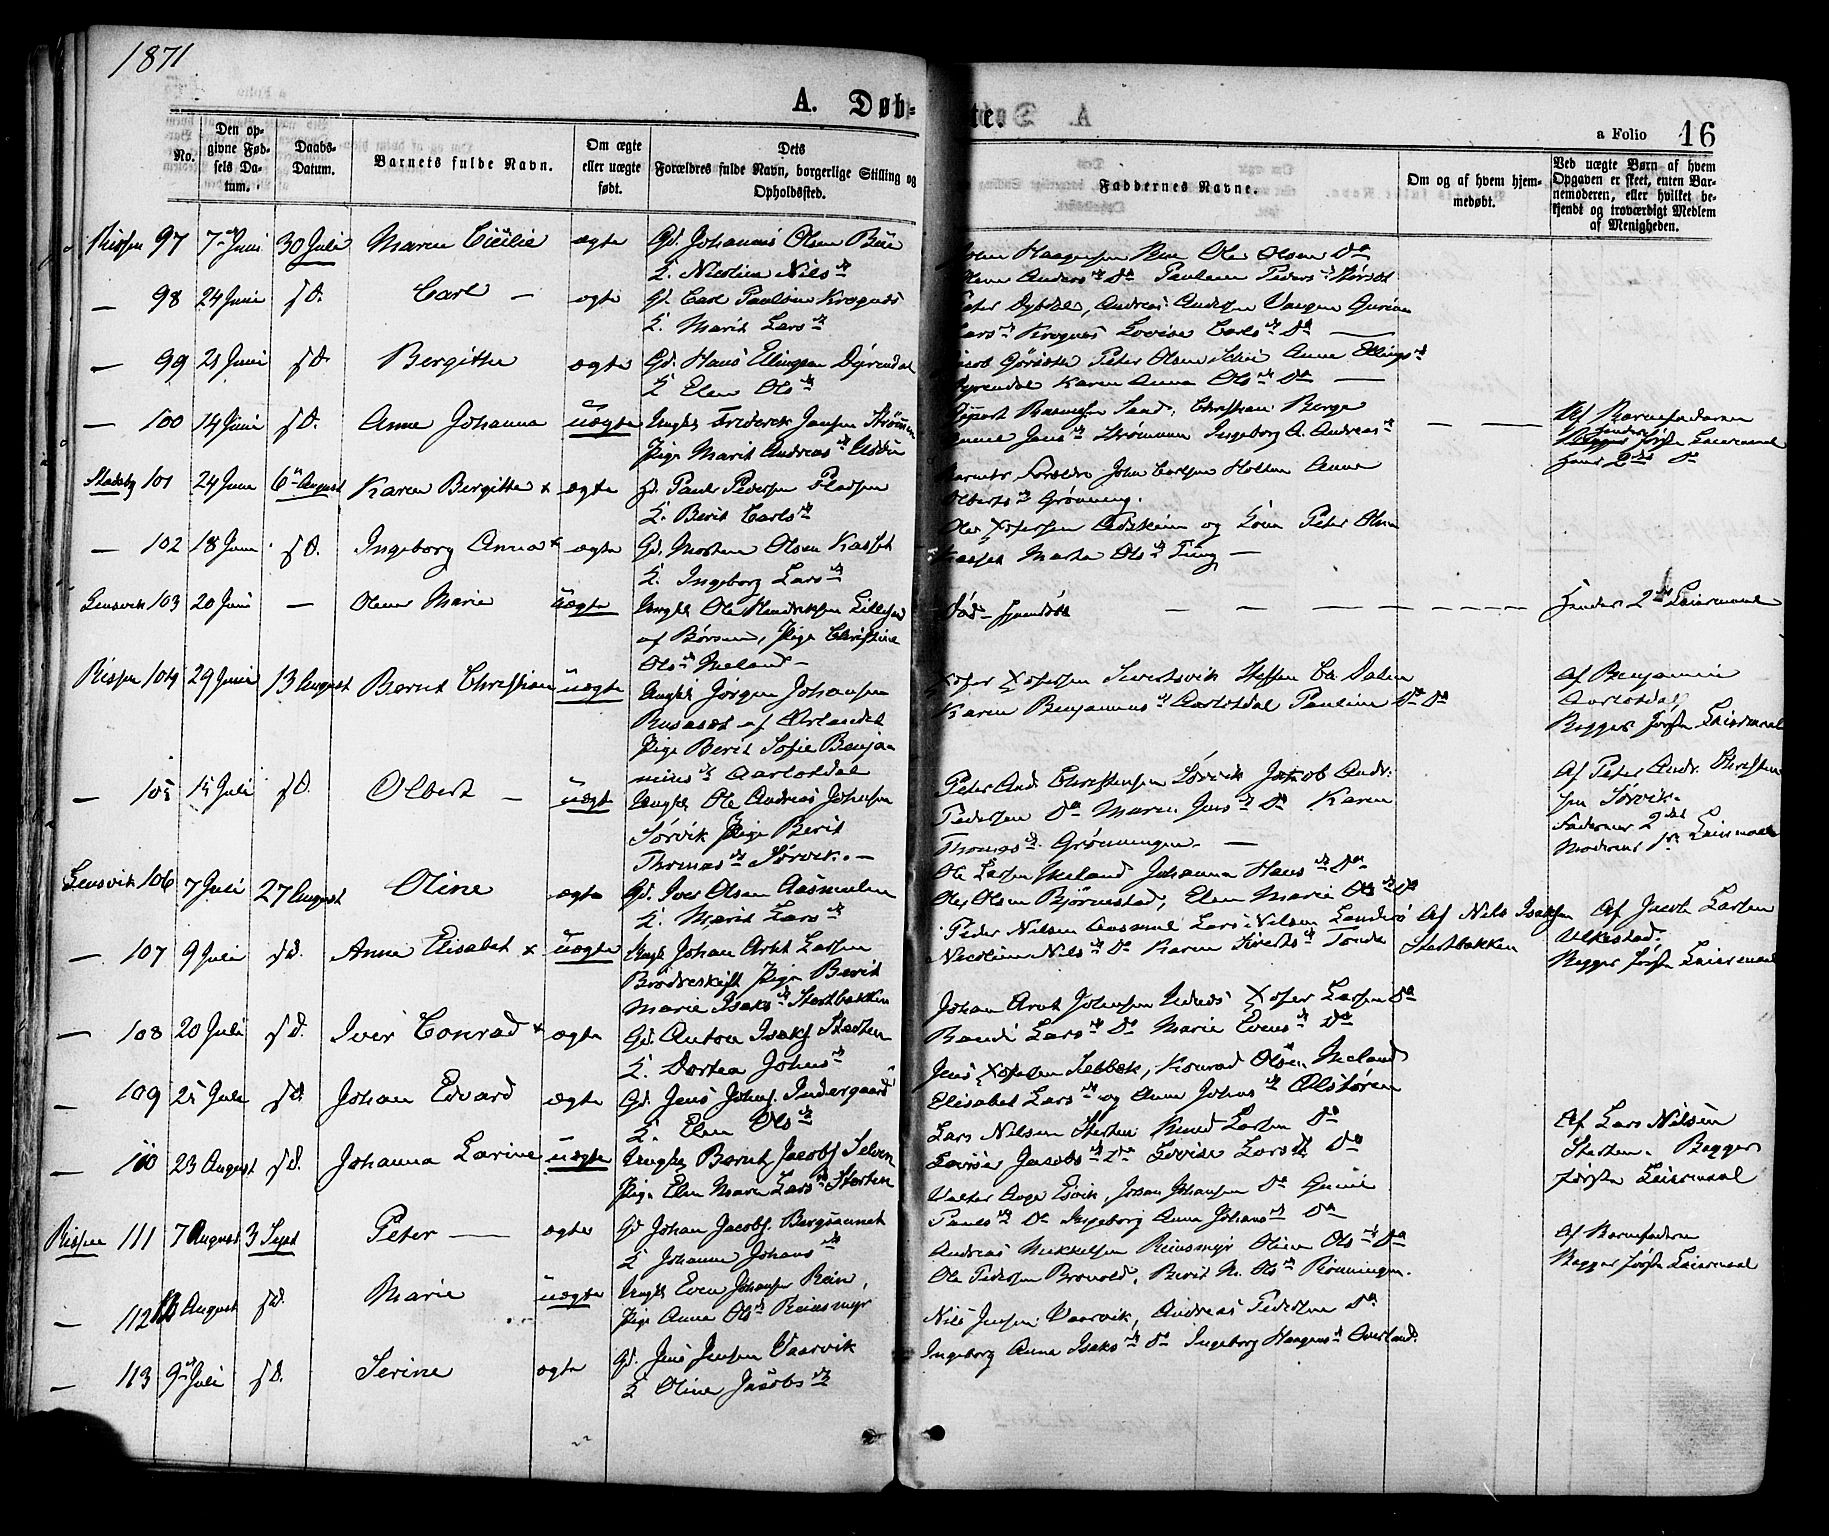 1871
A. Døb-
te.
a Folio 16
No.
Den op-
givne Fød-
sels Da-
tum.
Daabs-
Datum.
Barnets fulde Navn.
Om ægte
eller uægte
født.
Dets
Forældres fulde Navn, borgerlige Stilling og
Opholdssted.
Faddernes Navne.
Om og af hvem hjem-
medøbt.
Ved uægte Børn af hvem
Opgaven er skeet, enten Bar-
nemoderen, eller hvilket be-
kjendt og troværdigt Medlem
af Menigheden.
Rissen 97 7 Juni 30 Juli Maren Cecilie ægte Gd. Johannes Olsen
K. Nicolina Nilsd
— 98 24 Juni s D. Carl — ægte Gd. Carl Paulsen Krognes
K. Marit Larsd
Peter Andreas Andersen Vangen
Larsd Krognes Lovise Carlsd Do
— 99 21 Juni s D. Bergitte ægte Gd. Hans Ellingsen Dyrendal
K. Elen Olsd
Peter Olsen Anne Ellingsd
Dyrendal Karen Anna Olsd Do
— 100 14 Juni s D. Anne Johanna uægte Ungkl Frederik Jansen Strømmen
Pige Marit Andreasd
Rasmussen Sand, Christian Berge
Anne Jansd Strømmen Ingeborg A. Andreasd
Af Barnefaderen
Stadsby 101 24 Juni 6 August Karen Bergitte x ægte Paul Pedersen
K. Berit Carlsd
Barnets Forældre John Carlsen Holten Anna
Olbertsd Grønning.
— 102 18 Juni s D. Ingeborg Anna x ægte Gd. Morten Olsen Kasset
K. Ingeborg Larsd
Ole Xofersen og Kone Peter Olsen
Kasset Marta Olsd Tung —
Lensvik 103 20 Juni — Olene Marie uægte Ungkl Ole Hendriksen
af Børsen, Pige Christine
Olsd Meland —
Hendes 2det Leiermaal
Rissen 104 29 Juni 13 August Bernt Christian uægte Ungkl Jørgen Johansen
Rusaset af Ørlandet
Pige Berit Sofie Benja
minsd Aarlotdal
Xofer Xofersen Sivertsvik Steffen
Karen Benjaminsd Aarlotdal Pauline Do Do
Af Benjamin
Aarlotdal,
Begges første Leiermaal
— 105 15 Juli s D. Olbert — uægte Ungkl Ole Andreas Johnsen
Sørvik Pige Berit
Thomasd Sørvik. —
Peter And. Christensen Sørvik Jakob Andr.
Pedersen Do Maren Jensd Do Karen
Thomasd Grønningen. —
Af Peter Andr. Christen
sen Sørvik.
Faderens 2det
Moderens 1ste Leiermaal
Lensvik 106 7 Juli 27 August Oline ægte Gd. Iver Olsen Aasmulen
K. Marit Larsd
Ole Larsen Meland Johanna Hansd Do
Ole Olsen Bjørnestad, Elen Marie Olsd Do
— 107 9 Juli s D. Anne Elisabet x uægte Ungk Johan Arnt Larsen
Brødreskift Pige Berit
Marie Isaksd Stortbakken
Peder Nilsen Aasmul Lars Nilsen
Nicoline Nilsd Do Karen Sivertsd
Af Nils Isaksen
Stortbakken
Af Jacob Larsen
Begges første Leiermaal
— 108 20 Juli s D. Iver Conrad x ægte Gd. Anton Isaks. Storten
K. Dortea Johnsd
Johan Arnt Johnsen Xofer Larsen Do
Randi Larsd Do Marie Evensd Do
— 109 25 Juli s D. Johan Edvard ægte Gd. Jens Johns. Indergaard
K. Elen Olsd
Jens Xofersen Selbæk, Konrad Olsen Meland
Elisabet Larsd og Anne Johnsd Ølstøren
— 110 23 August s D. Johanna Larine uægte Ungkl Bernt Jacobs. Selven
Pige Elen Marie Larsd Storten
Lars Nilsen Storten Knud Larsen Do
Jacobsd Do Lovise Larsd Do
Af Lars Nilsen
Storten. Begges
første Leiermaal
Rissen 111 7 August 3 Sept Peter — ægte Gd Johan Jacobs. Bergsaunet
K Johanna Johansd
Johan Johansen Do
Paulsd Do Ingeborg Anna Johansd Do
— 112 August s D. Marie uægte Ungkl Even Johansen Rein,
Pige Anne Olsd Reinsmyr
Andreas Mikkelsen Reinsmyr Oline Olsd Do
Ole Pedersen Brovold, Berit M. Olsd Rønningen.
Af Barnefaderen
Begges første Leiermaal
— 113 9 Juli s D. Serine ægte Gd. Jens Jensen Vaarvik
K Oline Jacobsd
Nils Jensen Vaarvik, Andreas Pedersen Do
Ingeborg Anna Isaksd Do Ingeborg Haagensd Overland.